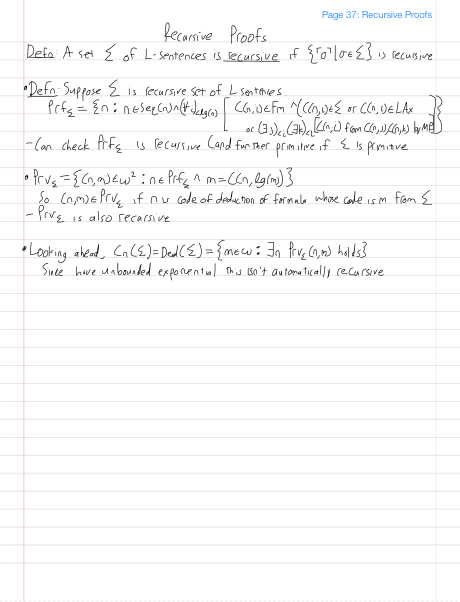 Page 37: Recursive Proofs
Recursive Proofs
Defn: A set Σ of L-sentences is recursive if {⌈σ⌉ | σ∈Σ} is recursive
• Defn: Suppose Σ is recursive set of L sentences.
Prf_Σ = {n : n∈Seq(n) ∧ (∀i)<lg(n) [ C(n,i)∈Fm ∧ (C(n,i)∈Σ or C(n,i)∈LAx
or (∃j)<i (∃k)<i [C(n,i) from C(n,j), C(n,k) by MP]) ]}
- Can check Prf_Σ is recursive (and further primitive if Σ is primitive
• Prv_Σ = {(n,m)∈ω² : n∈Prf_Σ ∧ m=C(n,lg(m))}
So (n,m)∈Prv_Σ if n is code of deduction of formula whose code is m from Σ
- Prv_Σ is also recursive
• Looking ahead, Cn(Σ)=Ded(Σ)={m∈ω : ∃n Prv_Σ(n,m) holds}
Since have unbounded exponential this isn't automatically recursive